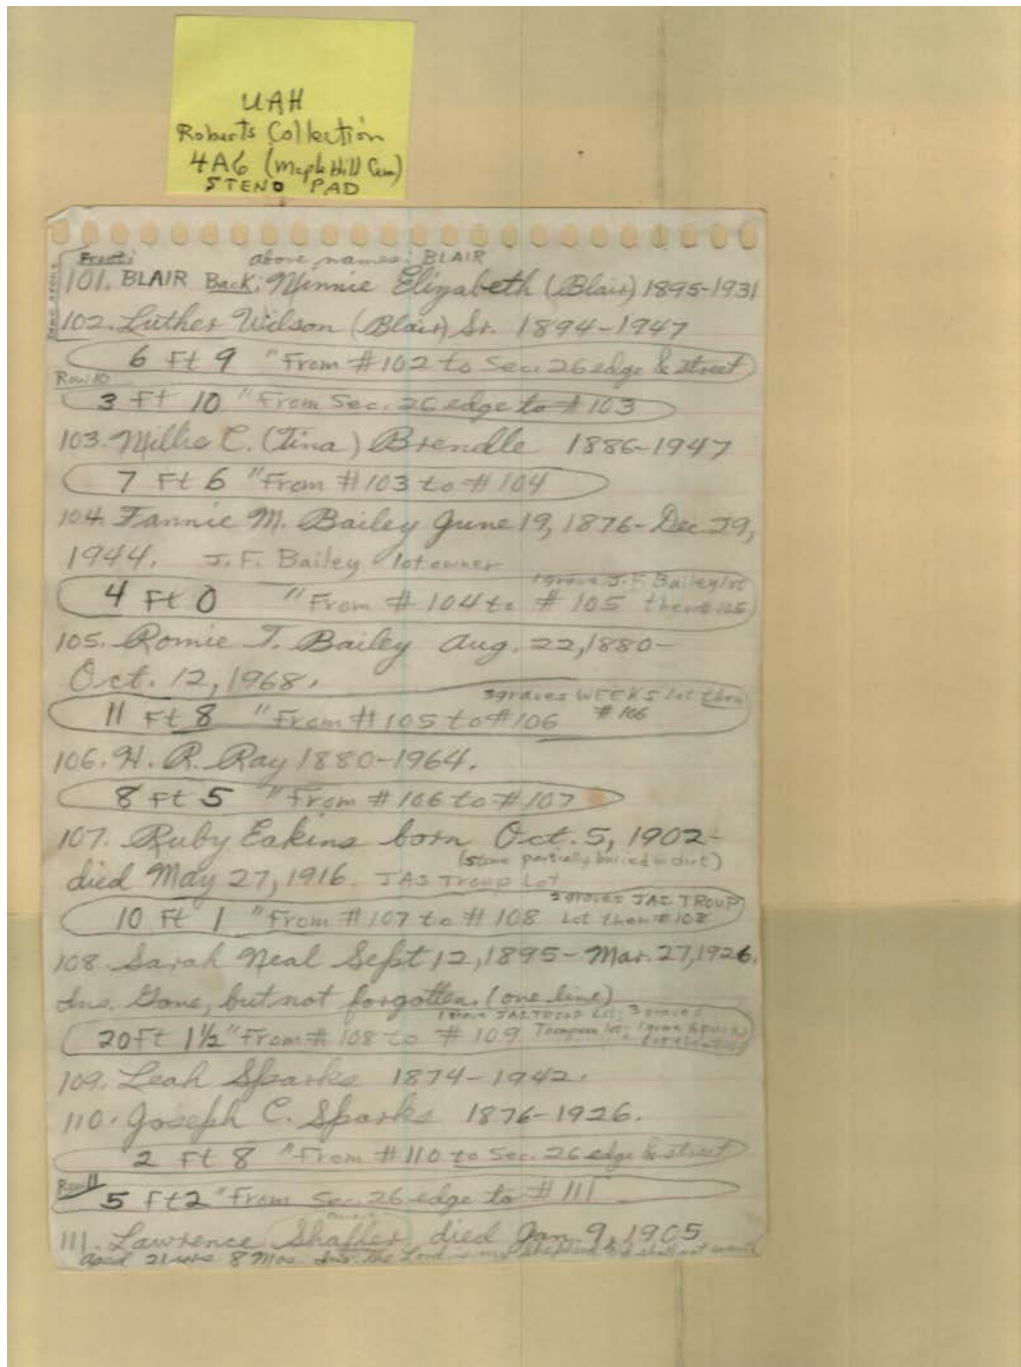 UAH
Roberts Collection
4A6 (Maple Hill Cem)
STENO PAD
Front: above names: BLAIR
101. BLAIR Back: Minnie Elizabeth (Blair) 1895-1931
102. Luther Wilson (Blair) Sr. 1894-1947
6 Ft 9 "From #102 to Sec. 26 edge & street
Row 10
3 Ft 10 "From Sec. 26 edge to #103
103. Millie C. (Tina) Brendle 1886-1947
7 Ft 6 "From #103 to #104
104. Fannie M. Bailey June 19, 1876- Dec. 29,
1944. J.F. Bailey lot owner
1 grave J.F. Bailey lot
4 Ft 0 "From #104 to #105 then #105
105. Romie T. Bailey Aug. 22, 1880-
Oct. 12, 1968.
3 graves WEEKS lot then
11 Ft 8 "From #105 to #106 #106
106. H. R. Ray 1880-1964.
8 Ft 5 "From #106 to #107
107. Ruby Eakins born Oct. 5, 1902-
(stone partially buried in dirt)
died May 27, 1916. JAS Troup Lot
2 graves JAS. TROUP
10 Ft 1 "From #107 to #108 Lot then #108
108. Sarah Neal Sept 12, 1895- Mar. 27, 1926.
Ins. Gone, but not forgotten. (one line)
1 grave JAS TROUP Lot; 3 graves
20 Ft 1½ "From #108 to #109 Thompson lot; 1 grave Sparks
Lot then #109
109. Leah Sparks 1874-1942.
110. Joseph C. Sparks 1876-1926.
2 Ft 8 "From #110 to Sec. 26 edge & street
Row 11
5 Ft 2 "From Sec. 26 edge to #111
111. Lawrence Shaffer died Jan. 9, 1905
aged 21 yrs 8 Mos. Ins. The Lord is my Shepherd & I shall not want